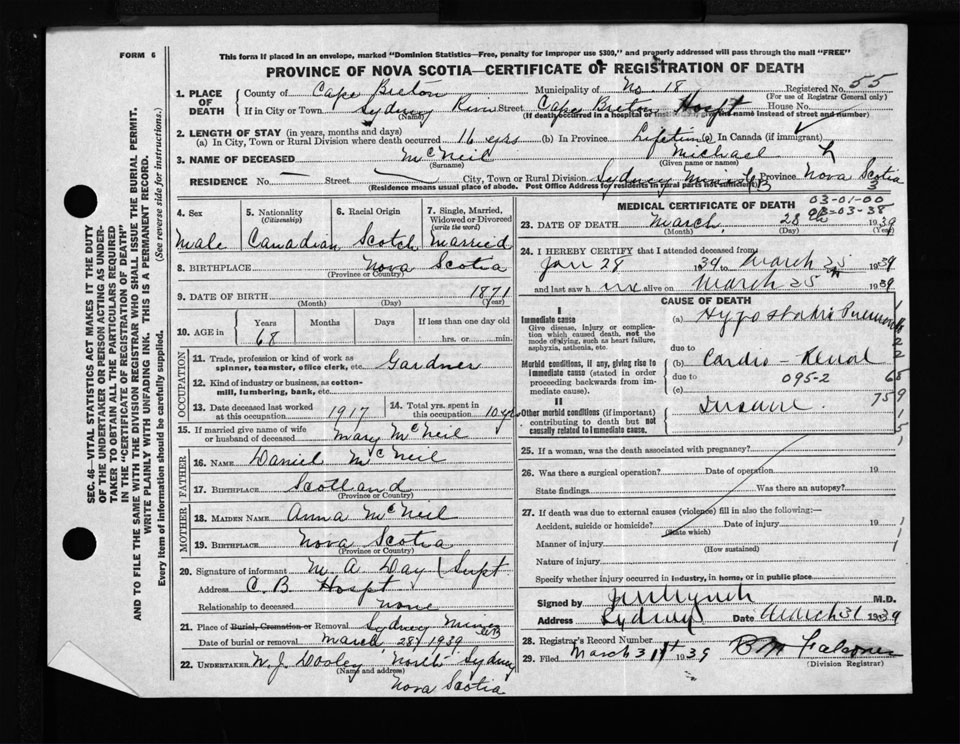 FORM 6
This form if placed in an envelope, marked "Dominion Statistics—Free, penalty for improper use $300," and properly addressed will pass through the mail "FREE"
PROVINCE OF NOVA SCOTIA—CERTIFICATE OF REGISTRATION OF DEATH
SEC. 46—VITAL STATISTICS ACT MAKES IT THE DUTY
OF THE UNDERTAKER OR PERSON ACTING AS UNDER-
TAKER TO OBTAIN ALL THE PARTICULARS REQUIRED
IN THE "CERTIFICATE OF REGISTRATION OF DEATH"
AND TO FILE THE SAME WITH THE DIVISION REGISTRAR WHO SHALL ISSUE THE BURIAL PERMIT.
WRITE PLAINLY WITH UNFADING INK. THIS IS A PERMANENT RECORD.
Every item of information should be carefully supplied. (See reverse side for instructions.)
1. PLACE OF DEATH County of Cape Breton Municipality of No. 18 Registered No. 55
(For use of Registrar General only)
If in City or Town Sydney River Street Cape Breton Hospt House No.
(Name) (If death occurred in a hospital or institution the name instead of street and number)
2. LENGTH OF STAY (in years, months and days)
(a) In City, Town or Rural Division where death occurred 16 yrs (b) In Province Lifetime (c) In Canada (if immigrant)
3. NAME OF DECEASED McNeil Michael
(Surname) (Given name or names)
RESIDENCE No. — Street — City, Town or Rural Division Sydney Mines CB Province Nova Scotia
(Residence means usual place of abode. Post Office Address for residents in rural parts not sufficient) 3
4. Sex Male
5. Nationality (Citizenship) Canadian
6. Racial Origin Scotch
7. Single, Married, Widowed or Divorced (write the word) Married
8. BIRTHPLACE Nova Scotia
(Province or Country)
9. DATE OF BIRTH 1871
(Month) (Day) (Year)
10. AGE in Years Months Days If less than one day old
68 hrs. or min.
OCCUPATION
11. Trade, profession or kind of work as spinner, teamster, office clerk, etc. Gardner
12. Kind of industry or business, as cotton-mill, lumbering, bank, etc.
13. Date deceased last worked at this occupation 1917
14. Total yrs. spent in this occupation 10 yrs
15. If married give name of wife or husband of deceased Mary McNeil
FATHER
16. NAME Daniel McNeil
17. BIRTHPLACE Scotland
(Province or Country)
MOTHER
18. MAIDEN NAME Anna McNeil
19. BIRTHPLACE Nova Scotia
(Province or Country)
20. Signature of informant M. A. Day Supt.
Address C. B Hospt
Relationship to deceased none
21. Place of Burial, Cremation or Removal Sydney Mines CB
Date of burial or removal March 28th 1939
22. UNDERTAKER W. J. Dooley North Sydney
(Name and address)
Nova Scotia
MEDICAL CERTIFICATE OF DEATH 03-01-00
03-03-38
23. DATE OF DEATH March 28th 1939
(Month) (Day) (Year)
24. I HEREBY CERTIFY that I attended deceased from
Jan 28 1939 to March 25 1939
and last saw h im alive on March 25 1939
CAUSE OF DEATH
I
Immediate cause
Give disease, injury or complication which caused death, not the mode of dying, such as heart failure, asphyxia, asthenia, etc.
(a) Hypostatic Pneumonia
due to
Morbid conditions, if any, giving rise to immediate cause (stated in order proceeding backwards from immediate cause).
(b) Cardio-Renal
due to 095-2
(c)
759
II
Other morbid conditions (if important) contributing to death but not causally related to immediate cause.
Insane.
25. If a woman, was the death associated with pregnancy?
26. Was there a surgical operation? Date of operation 19
State findings Was there an autopsy?
27. If death was due to external causes (violence) fill in also the following:—
Accident, suicide or homicide? Date of injury 19
(State which)
Manner of injury
(How sustained)
Nature of injury
Specify whether injury occurred in industry, in home, or in public place
Signed by M.D.
Address Sydney Date March 31 1939
28. Registrar's Record Number
29. Filed March 31st 1939
(Division Registrar)